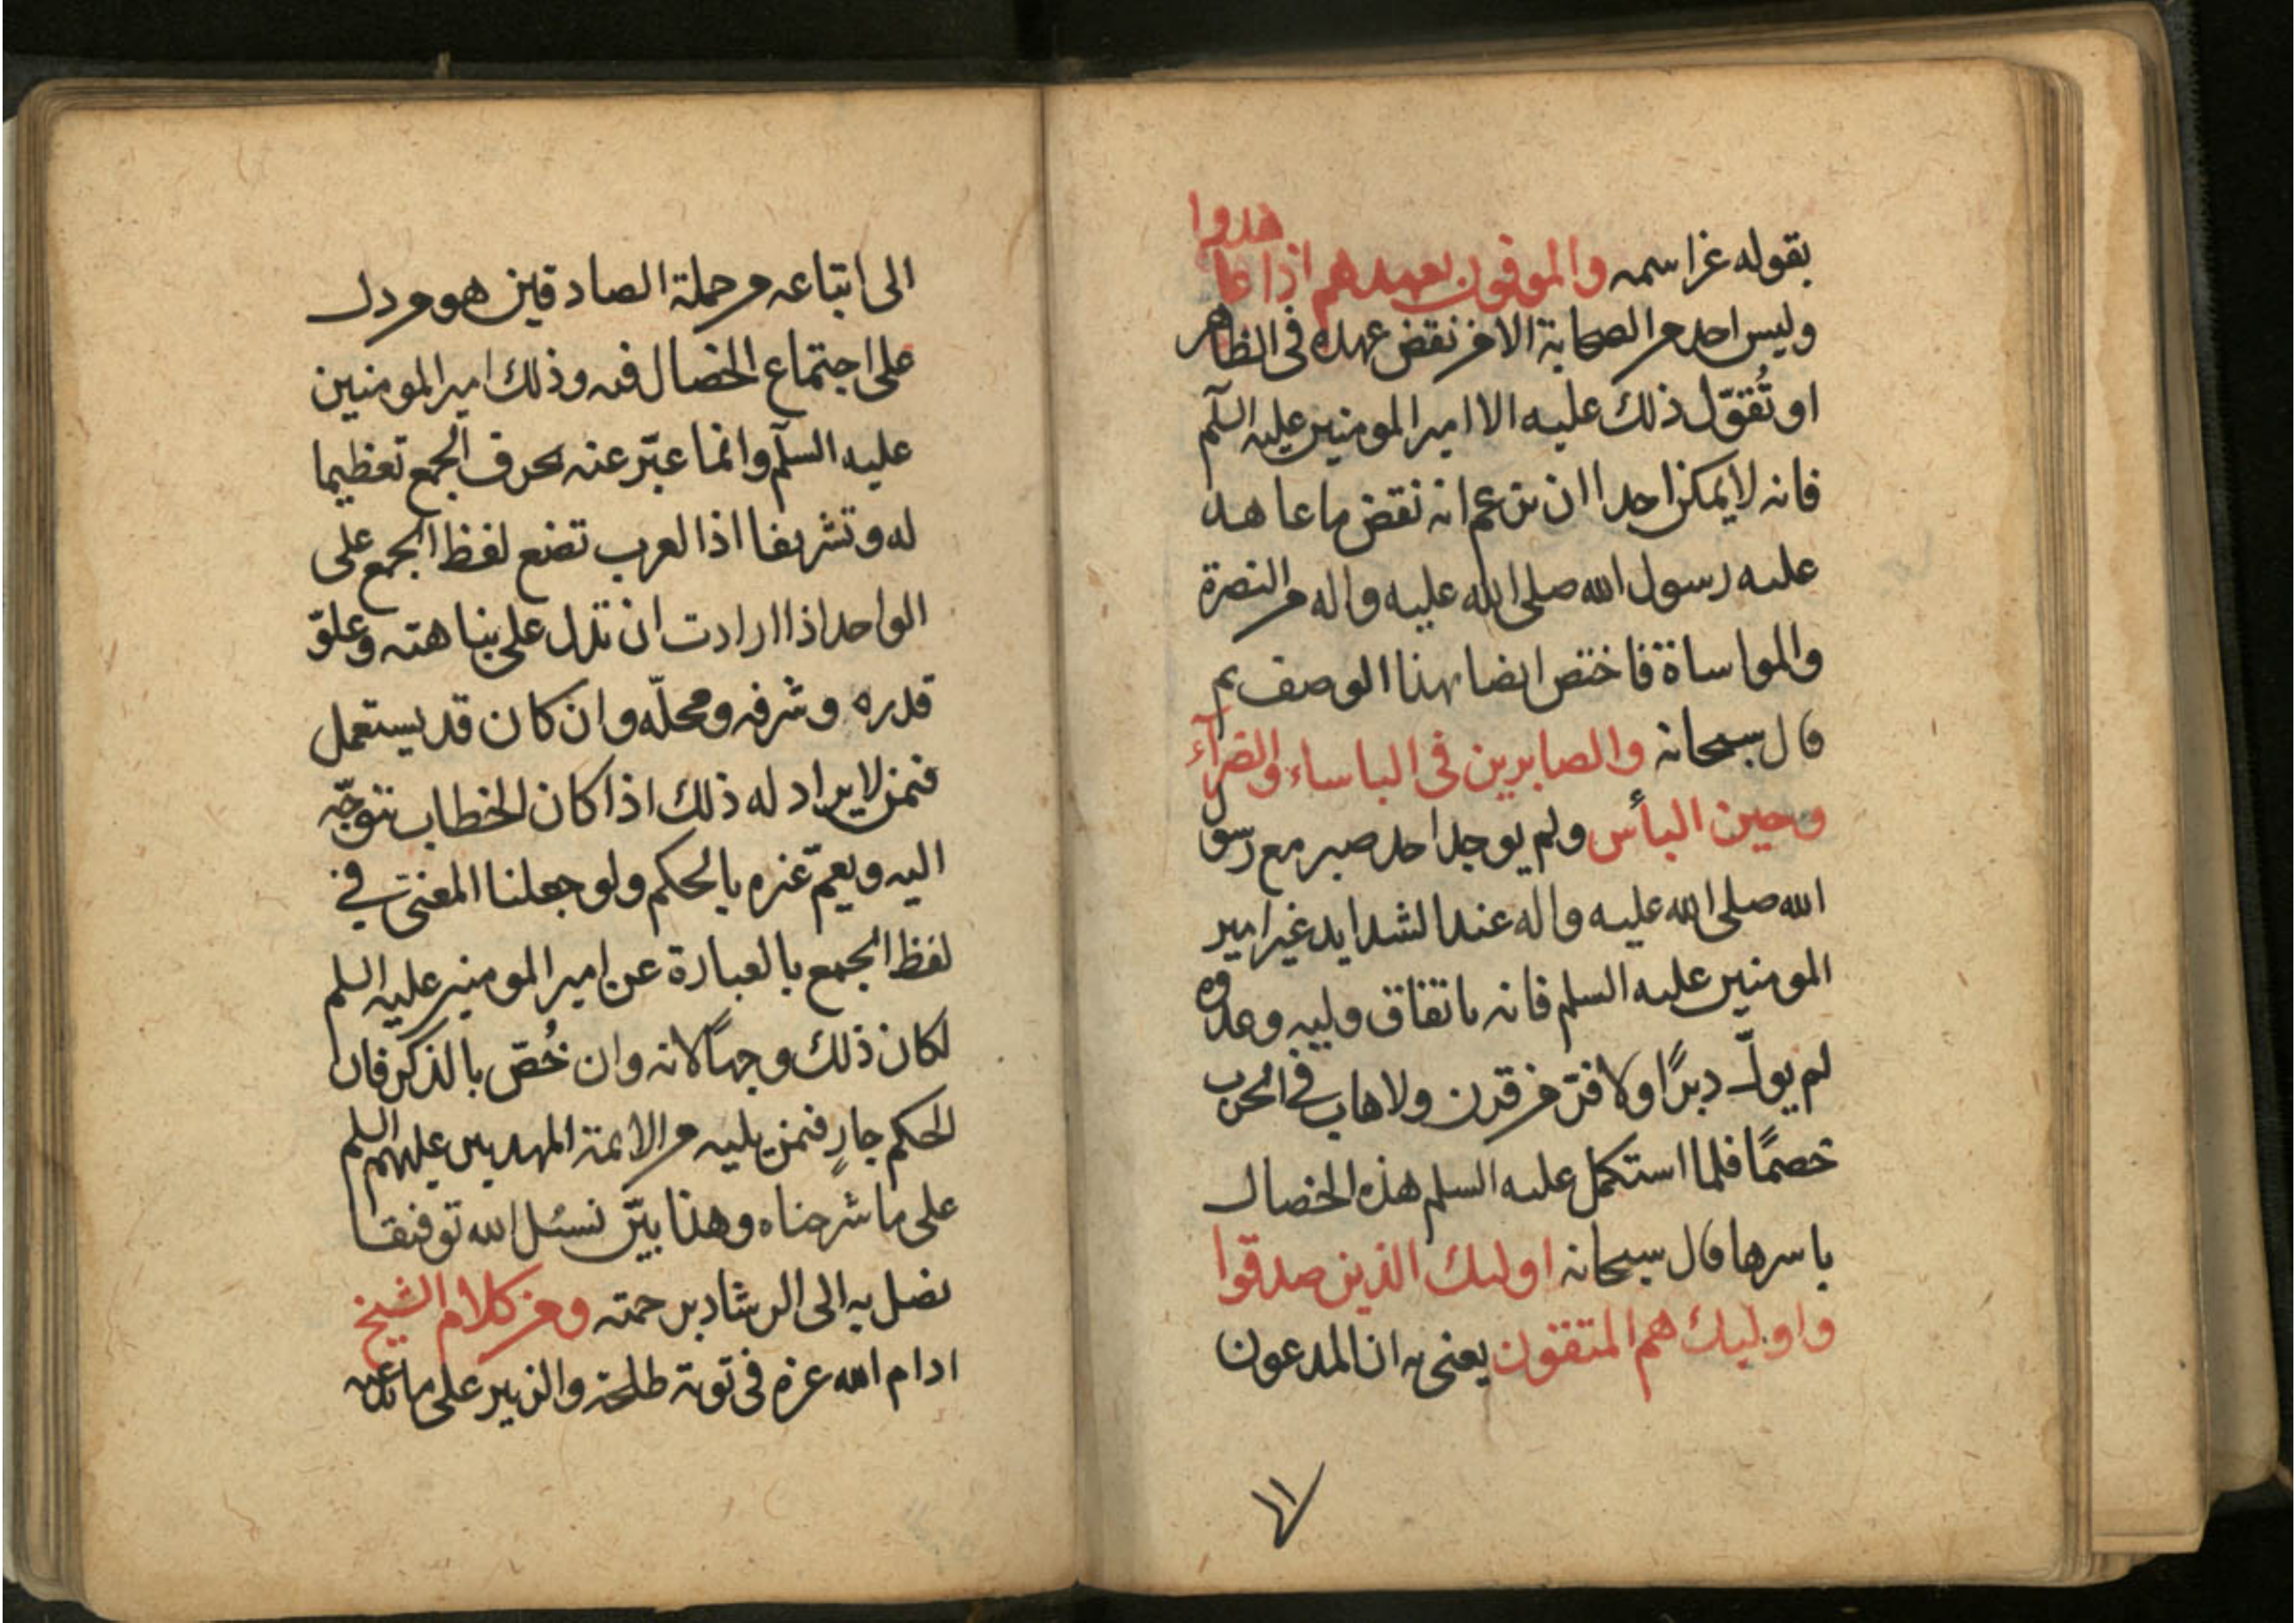 بقوله عز اسمه والموفون بعهدهم اذا عا
هدوا
وليس احد من الصحابة الا من نقض عهده فى الظاهر
او تُقوّل ذلك عليه الا امير المومنين عليه السلم
فانه لا يمكن احدا ان يزعم انه نقض ما عاهد
عليه رسول الله صلى الله عليه واله من النصرة
والمواساة فاختص ايضا بهذا الوصف ثم
قال سبحانه والصابرين فى الباساء والضرآء
وحين البأس ولم يوجد احد صبر مع رسول
الله صلى الله عليه واله عند الشدايد غير امير
المومنين عليه السلم فانه باتفاق وليه وعدوه
لم يولّ دبرًا ولا فرّ من قرن ولا هاب فى الحرب
خصمًا فلما استكمل عليه السلم هذه الخصال
باسرها قال سبحانه اوليك الذين صدقوا
واوليك هم المتقون يعنى به ان المدعون
١١
الى اتباعه من جملة الصادقين هو من دل
على اجتماع الخصال فيه وذلك امير المومنين
عليه السلم وانما عبّر عنه بحرف الجمع تعظيما
له وتشريفا اذ العرب تضع لفظ الجمع على
الواحد اذا ارادت ان تدل على نباهته وعلوّ
قدره وشرفه ومحلّه وان كان قد يستعمل
فيمن لا يراد له ذلك اذا كان الخطاب يتوجّه
اليه ويعمّ غيره بالحكم ولو جعلنا المعنى فى
لفظ الجمع بالعبارة عن امير المومنين عليه السلم
لكان ذلك وجهًا لانه وان خُصّ بالذكر فان
الحكم جارٍ فيمن يليه من الايمة المهديين عليهم السلم
على ما شرحناه وهذا بيّن نسئل الله توفيقا
نصل به الى الرشاد برحمته ومن كلام الشيخ
ادام الله عزه فى توبة طلحة والزبير على ما تدعيه